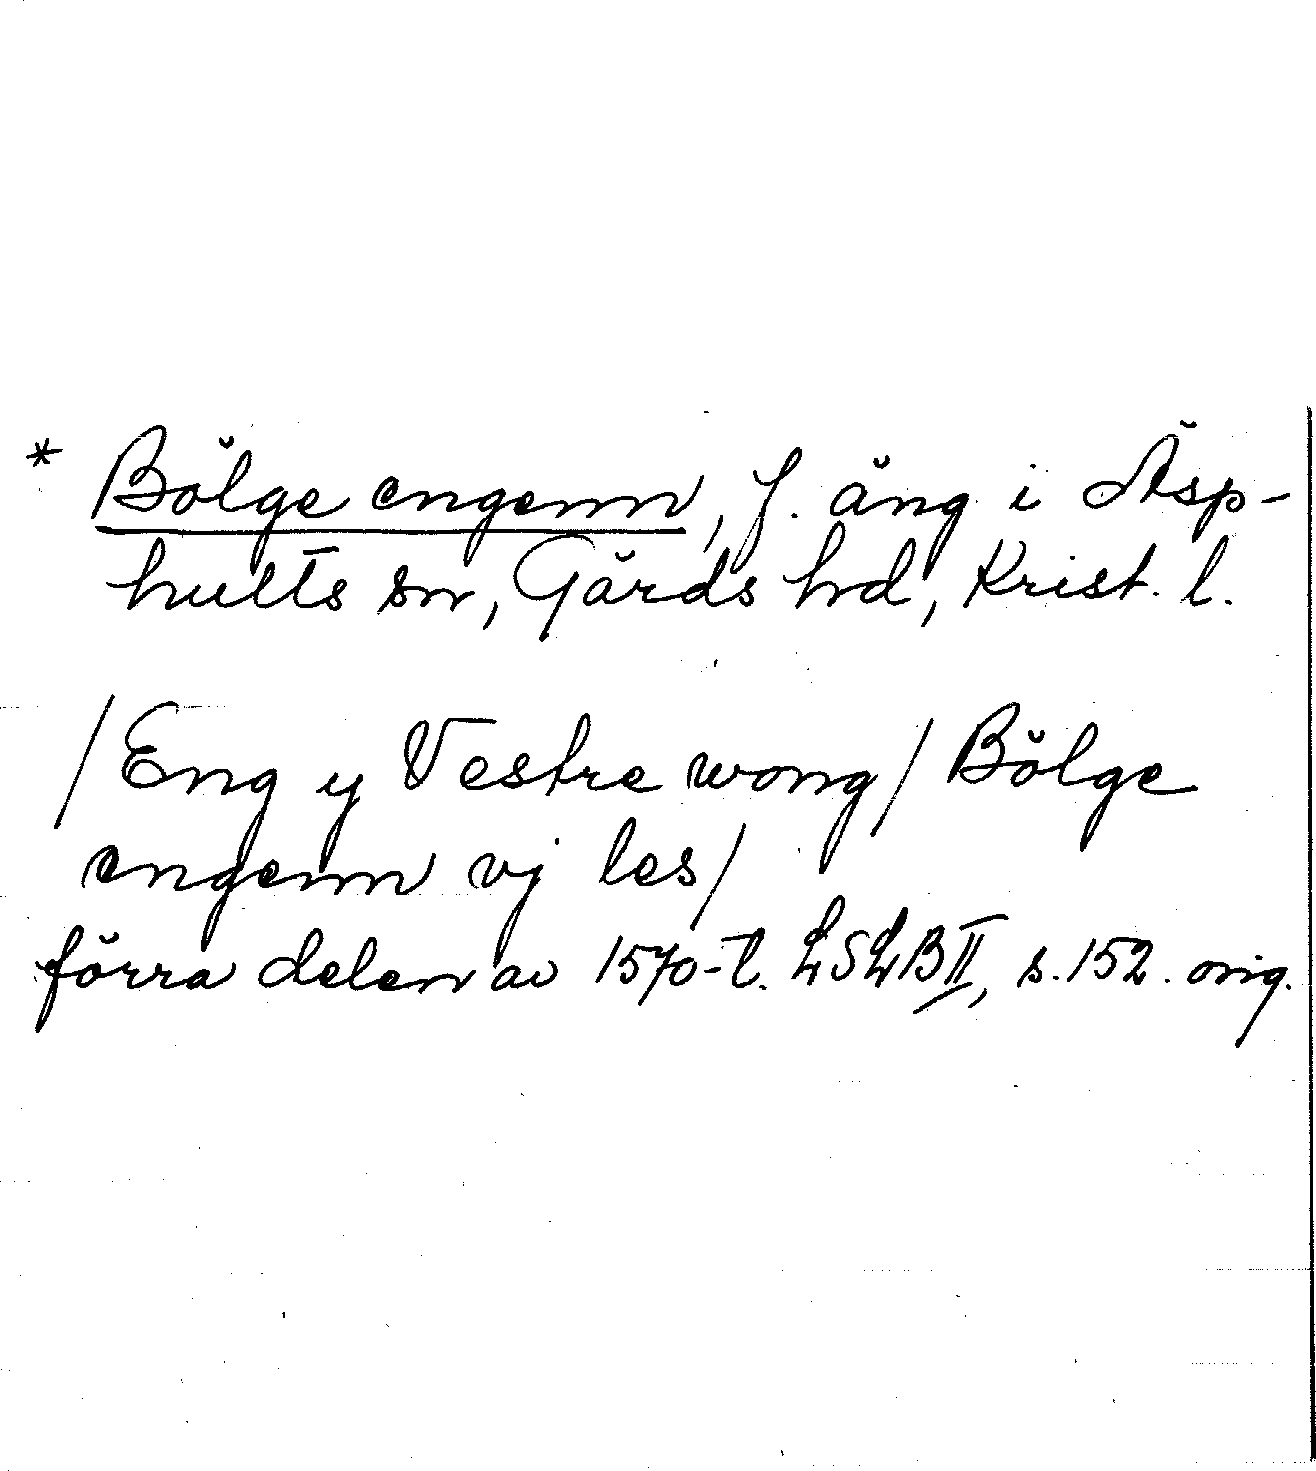 * Bölge engenn, f. äng i Äsp-
hults sn, Gärds hd, Krist. l.
/Eng y Vestre wong/ Bölge
engenn vj les/
förra delen av 1570-t. LSLB II, s. 152. orig.